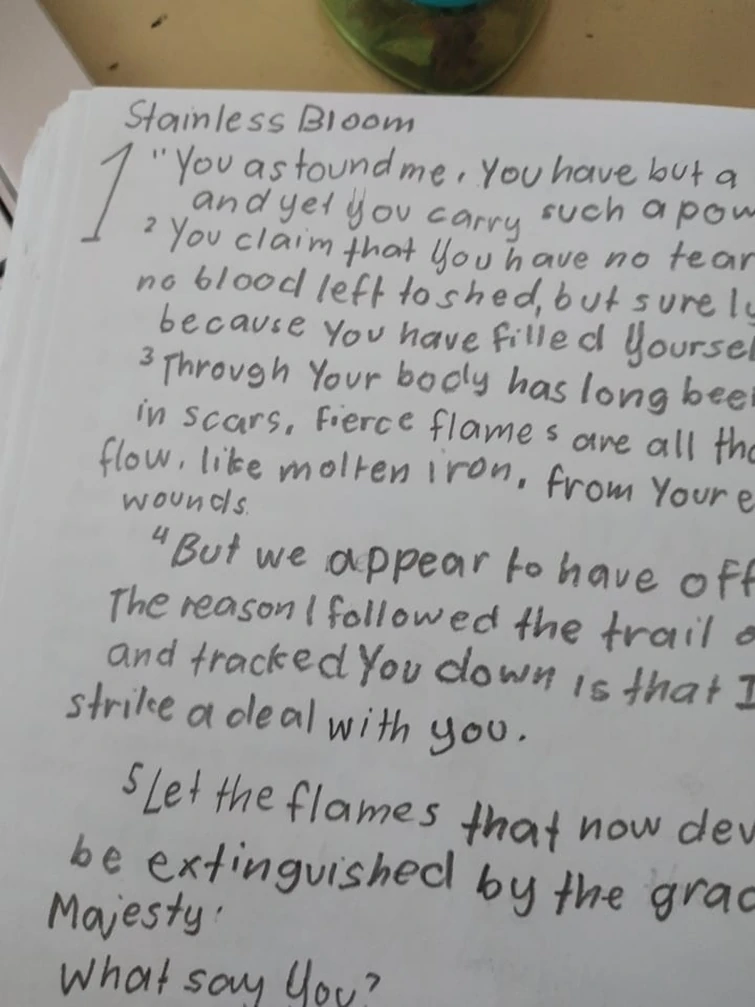 Stainless Bloom
1 "You astound me. You have but a
and yet you carry such a pow
2 You claim that you have no tear
no blood left to shed, but surely
because you have filled yoursel
3 Through Your body has long bee
in scars, fierce flames are all tha
flow, like molten iron, from Your e
wounds.
4 But we appear to have off
The reason I followed the trail o
and tracked You down is that I
strike a deal with you.
5 Let the flames that now dev
be extinguished by the grac
Majesty.
What say You?